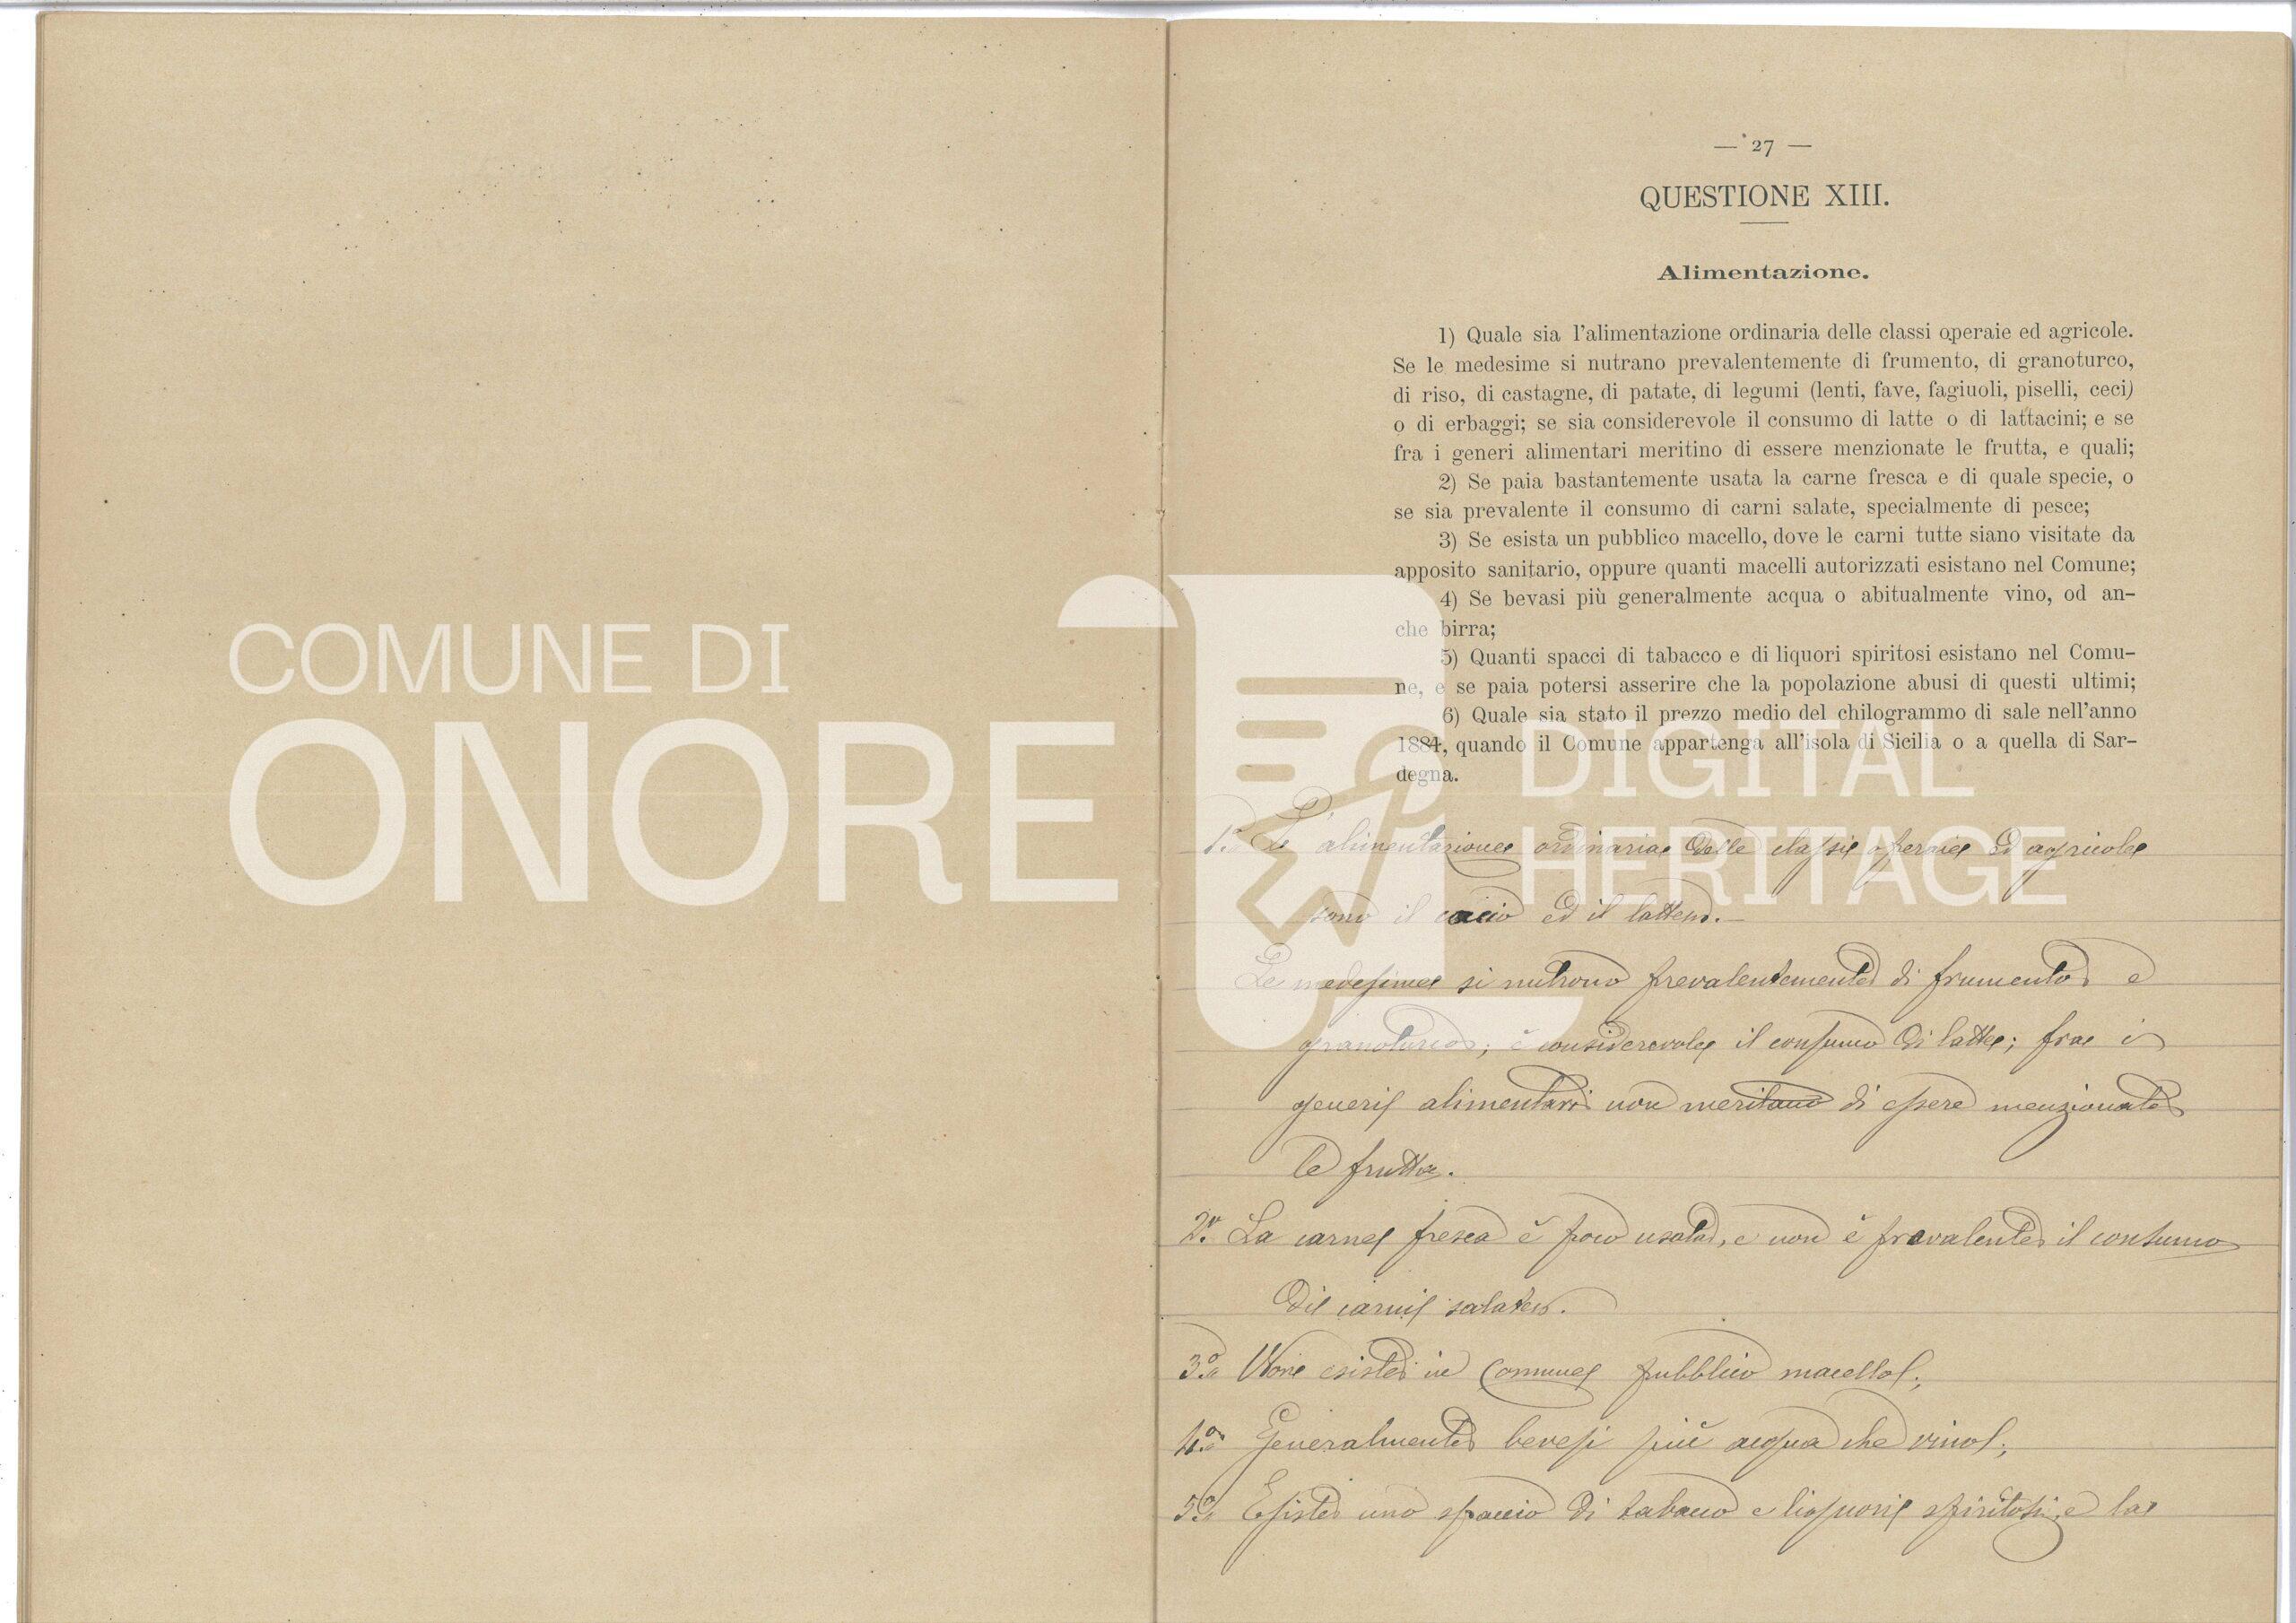 — 27 —
QUESTIONE XIII.
Alimentazione.
1) Quale sia l'alimentazione ordinaria delle classi operaie ed agricole.
Se le medesime si nutrano prevalentemente di frumento, di granoturco,
di riso, di castagne, di patate, di legumi (lenti, fave, fagiuoli, piselli, ceci)
o di erbaggi; se sia considerevole il consumo di latte o di lattacini; e se
fra i generi alimentari meritino di essere menzionate le frutta, e quali;
2) Se paia bastantemente usata la carne fresca e di quale specie, o
se sia prevalente il consumo di carni salate, specialmente di pesce;
3) Se esista un pubblico macello, dove le carni tutte siano visitate da
apposito sanitario, oppure quanti macelli autorizzati esistano nel Comune;
4) Se bevasi più generalmente acqua o abitualmente vino, od an-
che birra;
5) Quanti spacci di tabacco e di liquori spiritosi esistano nel Comu-
ne, e se paia potersi asserire che la popolazione abusi di questi ultimi;
6) Quale sia stato il prezzo medio del chilogrammo di sale nell'anno
1884, quando il Comune appartenga all'isola di Sicilia o a quella di Sar-
degna.
COMUNE DI
ONORE
DIGITAL
HERITAGE
1.° L'alimentazione ordinaria delle classi operaie ed agricole
sono il cacio ed il latte.
Le medesime si nutrono prevalentemente di frumento e
granoturco; è considerevole il consumo di latte; fra i
generi alimentari non meritano di essere menzionate
le frutta.
2.° La carne fresca è poco usata, e non è prevalente il consumo
di carni salate.
3.° Non esiste in Comune pubblico macello;
4.° Generalmente bevesi più acqua che vino;
5.° Esiste uno spaccio di tabacco e liquori spiritosi, e la